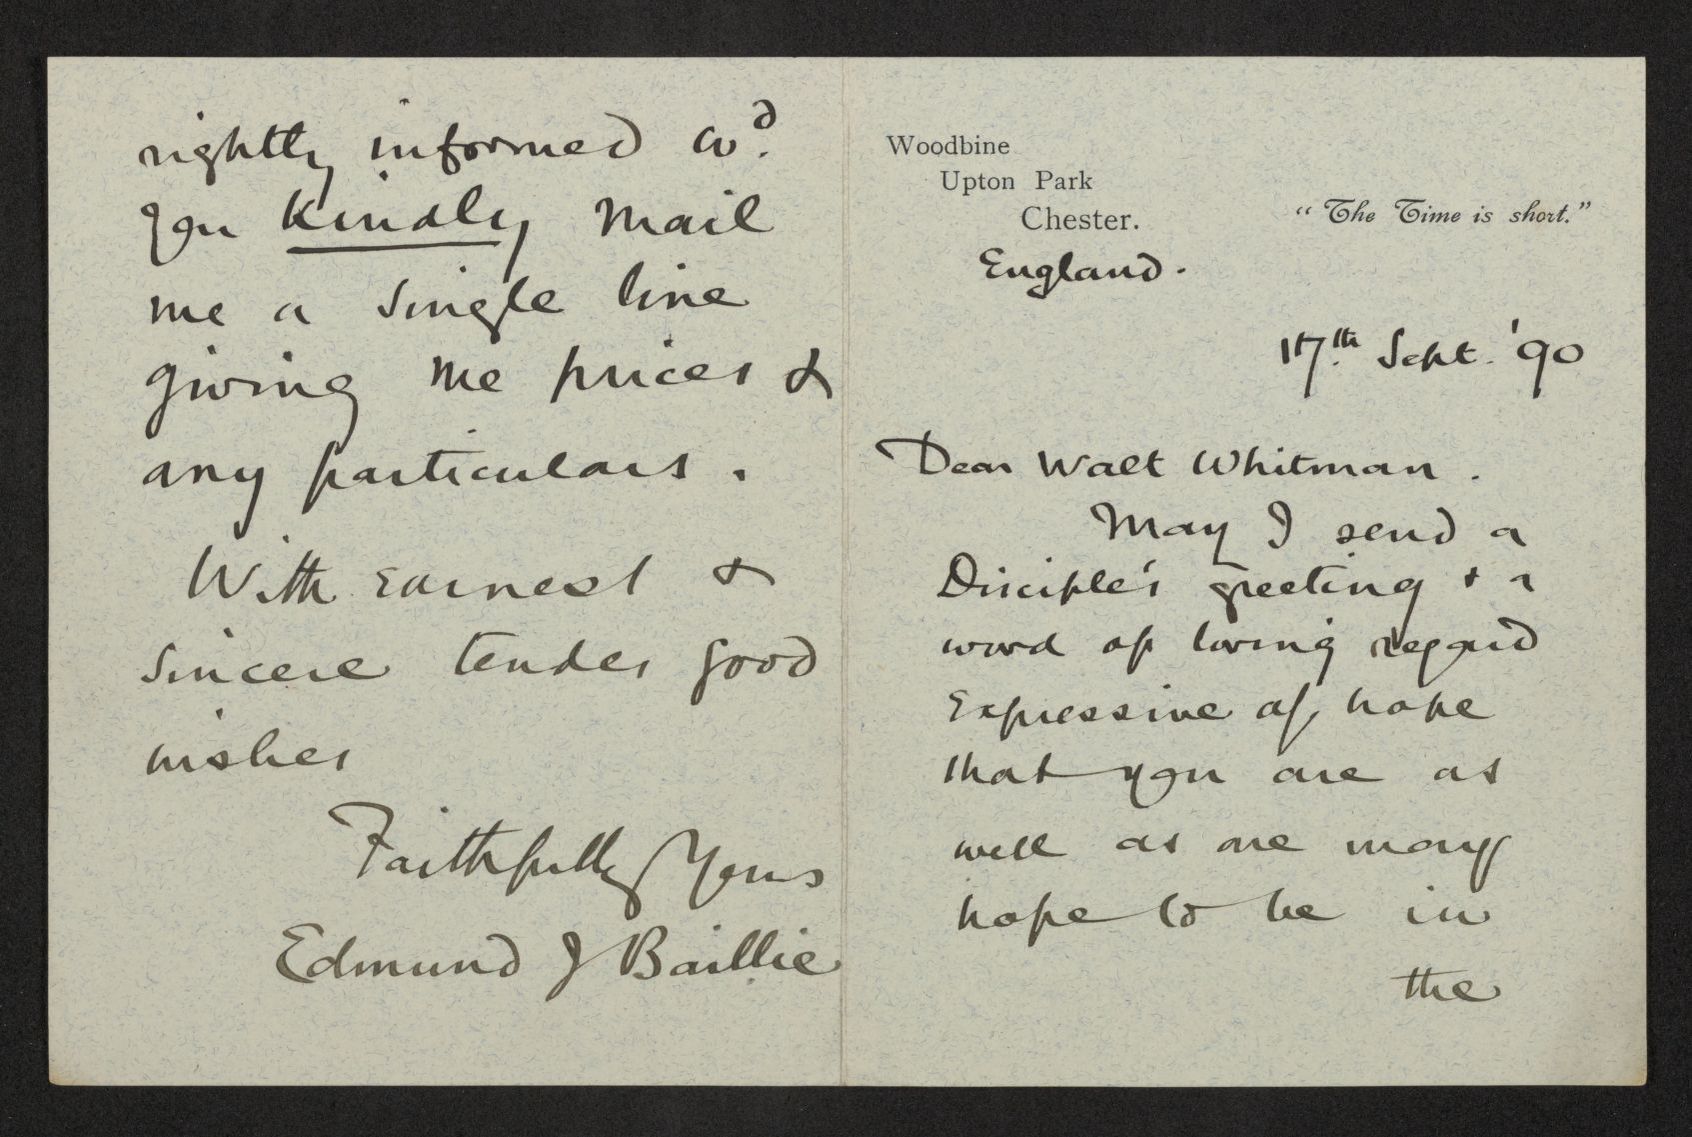 rightly informed wd.
you kindly mail
me a single line
giving me prices &
any particulars.
With earnest &
sincere tender good
wishes
Faithfully Yours
Edmund J Baillie
Woodbine
Upton Park
Chester.
"The Time is short."
England.
17th. Sept. '90
Dear Walt Whitman.
May I send a
Disciple's greeting & a
word of loving regard
expressive of hope
that you are as
well as one may
hope to be in
the